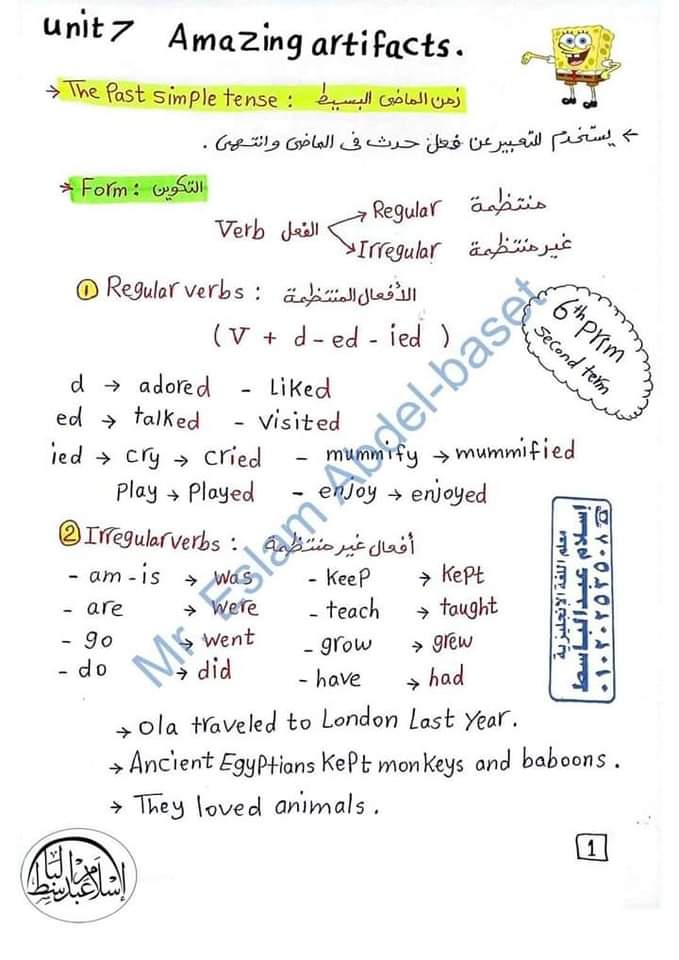 unit 7 Amazing artifacts.
→ The Past simple tense : زمن الماضى البسيط
← يستخدم للتعبير عن فعل حدث فى الماضى وانتهى .
→ Form : التكوين
Verb الفعل → Regular منتظمة
→ Irregular غير منتظمة
① Regular verbs : الأفعال المنتظمة
( V + d - ed - ied )
6th prim
second term
d → adored - Liked
ed → talked - visited
ied → cry → cried - mummify → mummified
Play → Played - enjoy → enjoyed
② Irregular verbs : أفعال غير منتظمة
- am - is → was - Keep → Kept
- are → were - teach → taught
- go → went - grow → grew
- do → did - have → had
→ Ola traveled to London Last year.
→ Ancient Egyptians Kept monkeys and baboons .
→ They loved animals .
1
Mr. Eslam Abdel-baset
معلم اللغة الإنجليزية
إسلام عبدالباسط
٠١٠٢٠٢٥٢٥٠٨
إسلام عبد الباسط